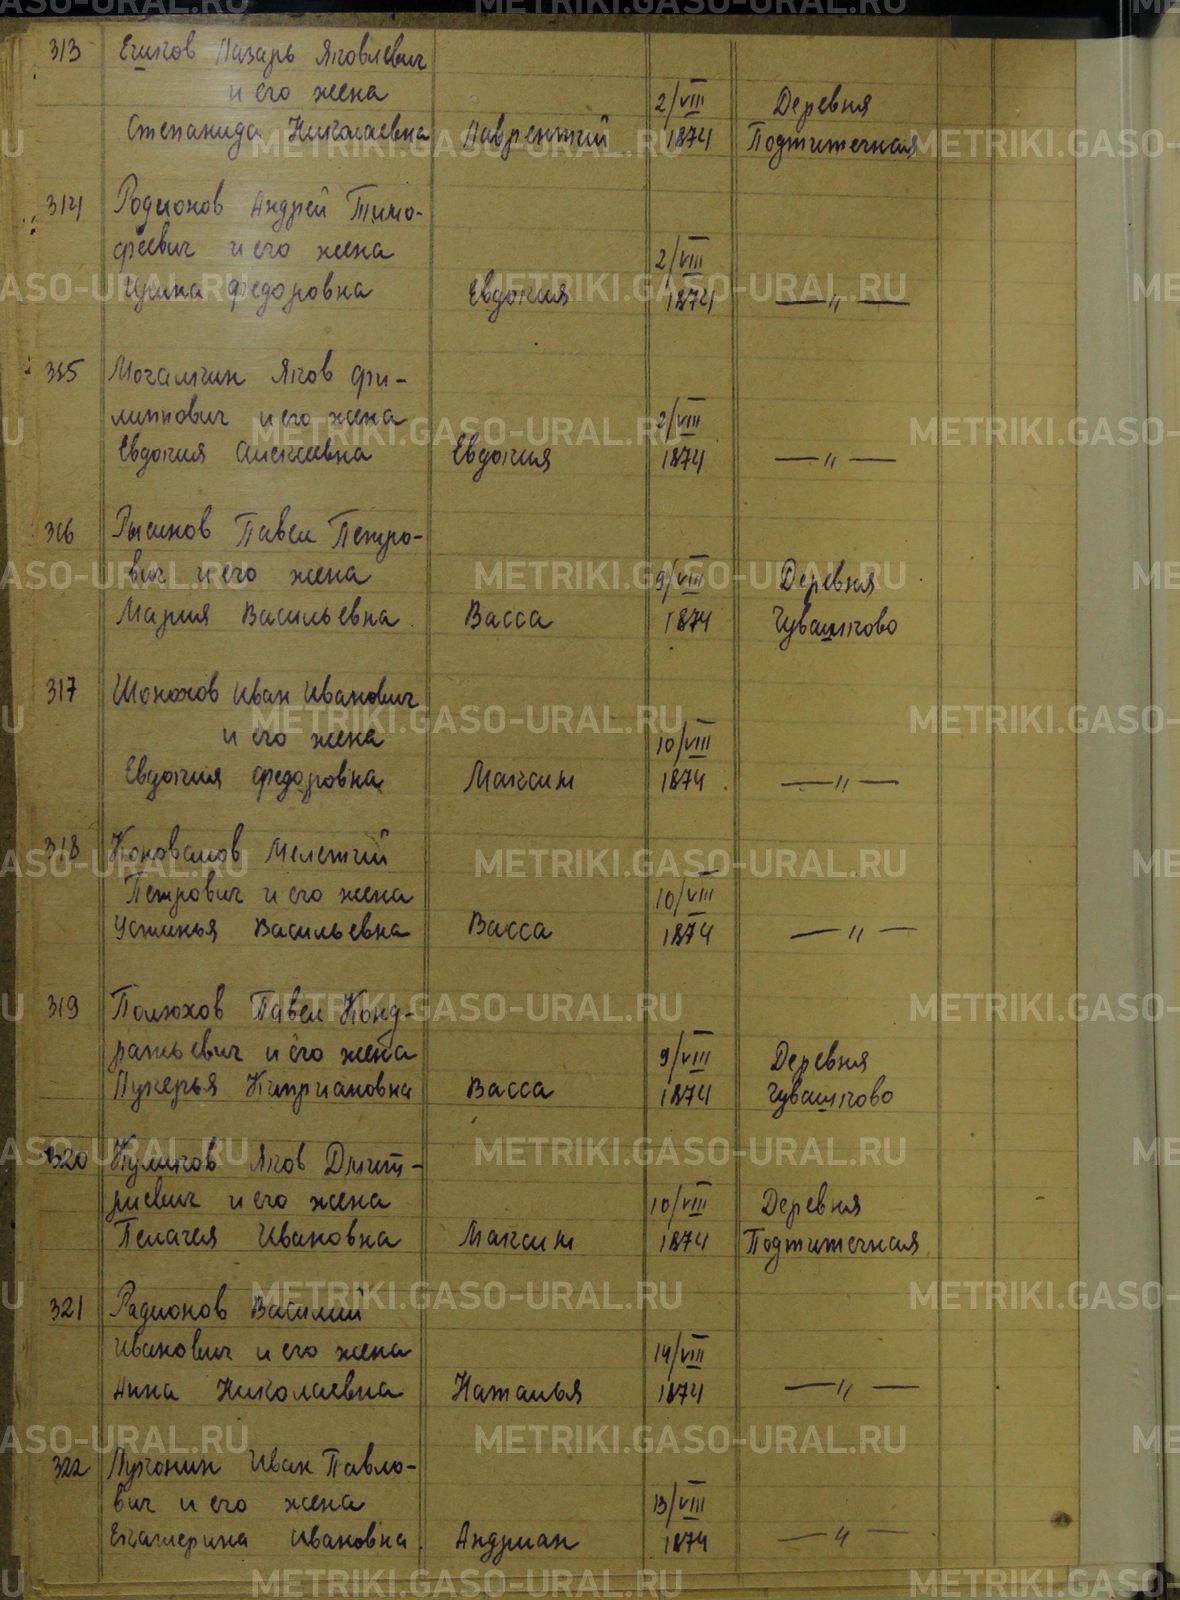 313 Егинов Лазарь Яковлевич
и его жена
Степанида Николаевна Лаврентий 2/VIII 1874 Деревня Подтитечная
314 Родионов Андрей Тимо-
феевич и его жена
Ирина Федоровна Евдокия 2/VIII 1874 — " —
315 Мочалкин Яков Фи-
липпович и его жена
Евдокия Алексеевна Евдокия 2/VIII 1874 — " —
316 Павел Петро-
вич и его жена
Мария Васильевна Васса 9/VIII 1874 Деревня Чувашково
317 Шонохов Иван Иванович
и его жена
Евдокия Федоровна Максим 10/VIII 1874 — " —
318 Коновалов Мелетий
Петрович и его жена
Устинья Васильевна Васса 10/VIII 1874 — " —
319 Полюхов Павел Конд-
ратьевич и его жена
Лукерья Киприановна Васса 9/VIII 1874 Деревня Чувашково
320 Куликов Яков Дмит-
риевич и его жена
Пелагея Ивановна Максим 10/VIII 1874 Деревня Подтитечная
321 Радионов Василий
Иванович и его жена
Анна Николаевна Наталья 14/VIII 1874 — " —
322 Иван Павло-
вич и его жена
Екатерина Ивановна Андриан 13/VIII 1874 — " —
METRIKI.GASO-URAL.RU